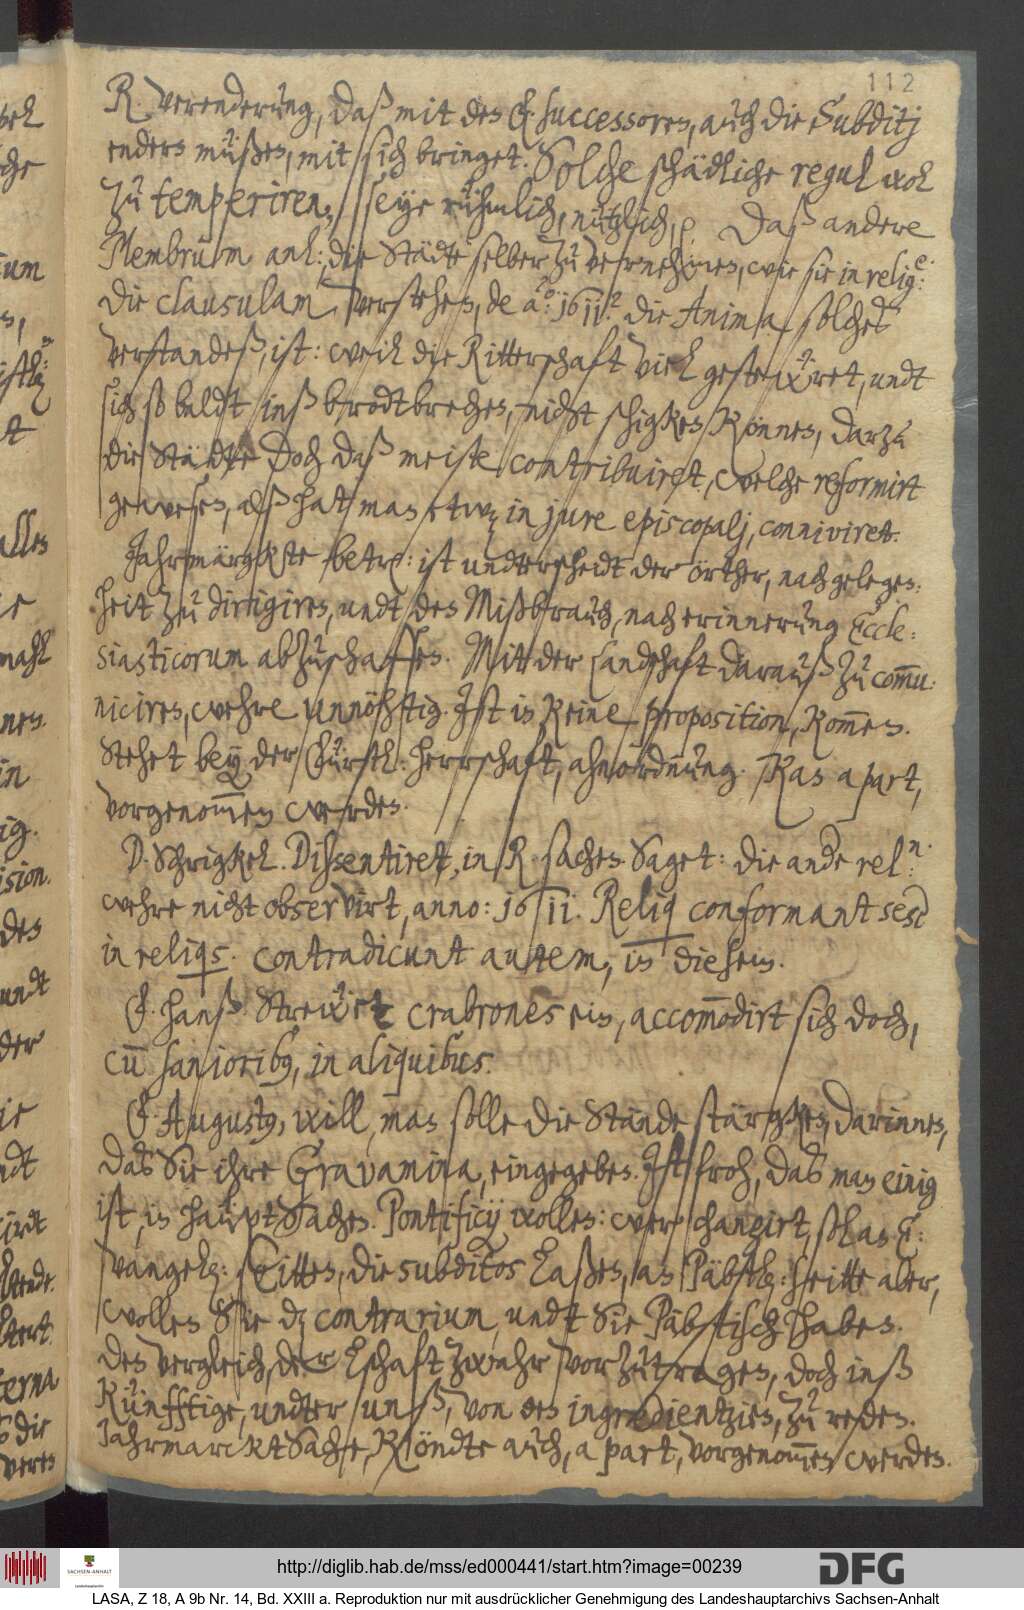 112
R. verenderung, daß mit des F. successoren, auch die Subditj
enders müßen, mit sich bringet. Solche schädliche regul wol
zu temperiren, seye rühmlich, nützlich, p. Daß andere
Membrum anl: die Städte selber zu vernehmen, wie sie in relig:e
die clausulam, verstehen, de ao: 1611. die Anima solches
verstandeß, ist: weil die Ritterschaft viel gestewret, undt
sich so baldt inß brodtbrechen, nicht schigken können, darzu
die Städte doch daß meiste contribuiret, welche reformirt
gewesen, alß hat man etwz in jure episcopalj, conniviret.
Jahrmärgkte betr: ist undterscheidt der örther, nach gelegen:
heit zu dirigiren, undt des Mißbrauch, nach erinnerung Eccle:
siasticorum abzuschaffen. Mitt der Landschaft darauß zu com̅u:
niciren, wehre unnöhtig. Ist in keine proposition, kom̅en.
Stehet bey der Fürstl: herrschaft, ahnordnung. Kan apart,
vorgenom̅en werden.
D. Schrigkel. Dissentiret, in R. sachen. Saget: die ande reln:
wehre nicht observirt, anno: 1611. Reliq conformant sese
in reliqs. contradicunt autem, in diesem.
F. Hanß. Strewet crabrones ein, accom̅odirt sich doch,
cu̅ saniorib9, in aliquibus.
F. August9, will, man solle die Stände stärgken, darinnen,
das Sie ihre Gravamina, eingegeben. Ist froh, das man einig
ist, in haupt Sachen. Pontificij wollen: wer changirt, soll an E:
vangelg: seitten, die subditos laßen, an Päbstlg: seitte aber,
wollen Sie dz contrarium, undt Sie Päbstisch haben.
des vergleich, der Lschaft zwahr vorzutragen, doch inß
künfftige, undter unß, von des ingredientzien, zu reden.
Jahrmarckt Sache, köndte auch, a part, vorgenom̅en werden.
http://diglib.hab.de/mss/ed000441/start.htm?image=00239
SACHSEN-ANHALT
DFG
LASA, Z 18, A 9b Nr. 14, Bd. XXIII a. Reproduktion nur mit ausdrücklicher Genehmigung des Landeshauptarchivs Sachsen-Anhalt